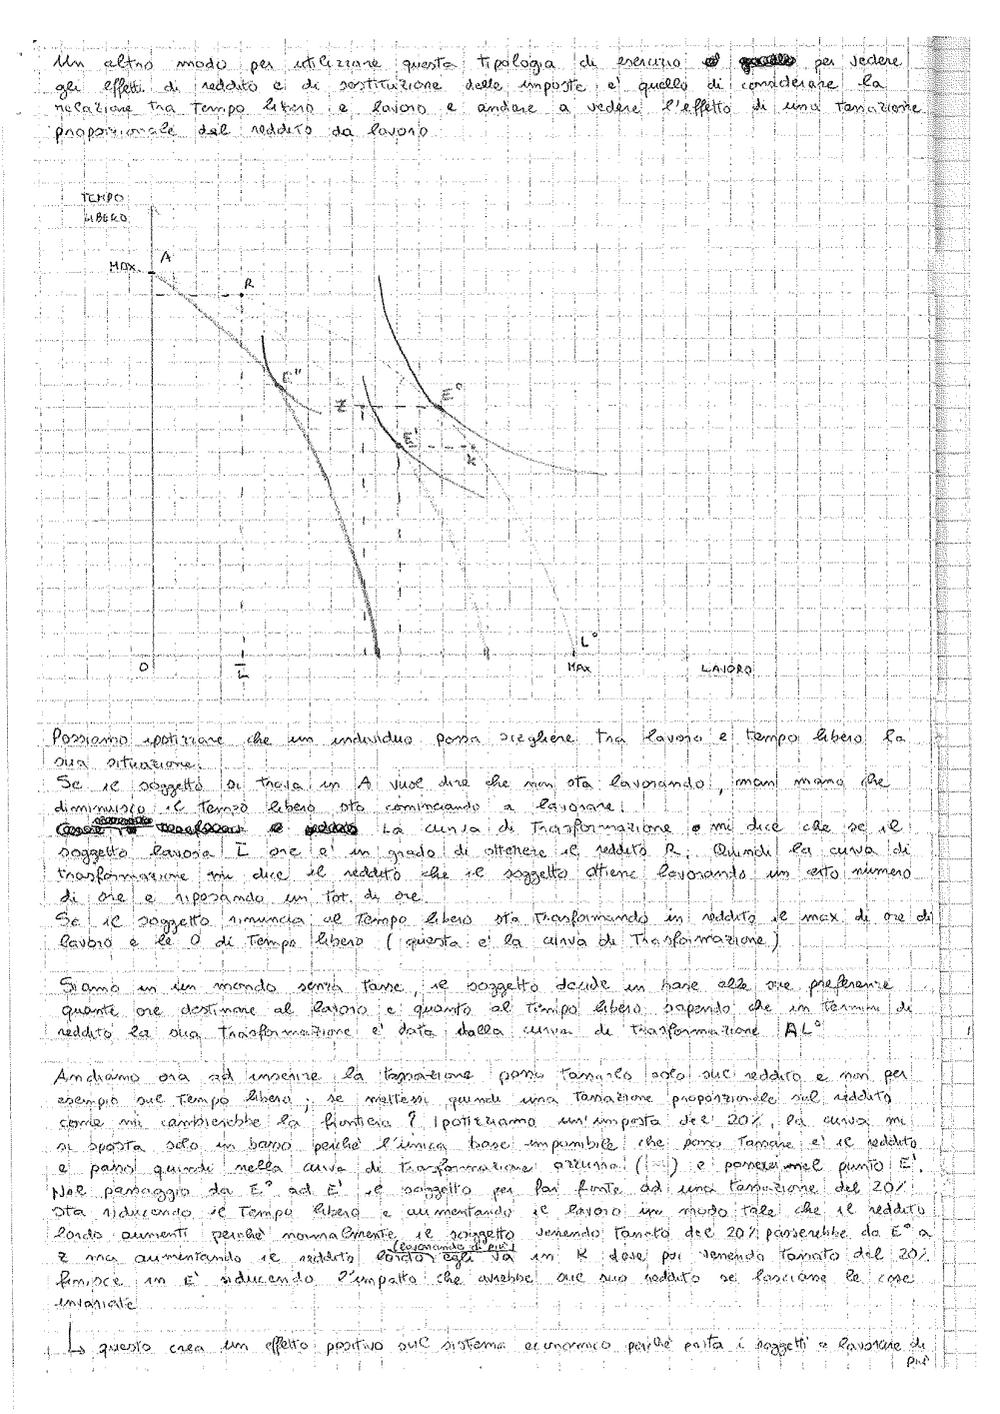 Un altro modo per utilizzare questa tipologia di esercizio per vedere
gli effetti di reddito e di sostituzione delle imposte e' quello di considerare la
relazione tra tempo libero e lavoro e andare a vedere l'effetto di una tassazione
proporzionale del reddito da lavoro
TEMPO
LIBERO
MAX
A
R
E''
E°
Z
E'
K
L°
O
L̅
MAX
LAVORO
Possiamo ipotizzare che un individuo possa scegliere tra lavoro e tempo libero la
sua situazione.
Se il soggetto si trova in A vuol dire che non sta lavorando, man mano che
diminuisco il tempo libero sto cominciando a lavorare.
La curva di trasformazione mi dice che se il
soggetto lavora L̅ ore e' in grado di ottenere il reddito R. Quindi la curva di
trasformazione mi dice il reddito che il soggetto ottiene lavorando un certo numero
di ore e riposando un tot. di ore.
Se il soggetto rinuncia al tempo libero sta trasformando in reddito il max di ore di
lavoro e le 0 di tempo libero (questa e' la curva di trasformazione)
Siamo in un mondo senza tasse, il soggetto decide in base alle sue preferenze
quante ore destinare al lavoro e quanto al tempo libero sapendo che in termini di
reddito la sua trasformazione e' data dalla curva di trasformazione AL°
Andiamo ora ad inserire la tassazione posso tassarlo solo sul reddito e non per
esempio sul tempo libero; se mettessi quindi una tassazione proporzionale sul reddito
come mi cambierebbe la frontiera? Ipotizziamo un'imposta del 20%, la curva mi
si sposta solo in basso perche' l'unica base imponibile che posso tassare e' il reddito
e passo quindi nella curva di trasformazione azzurra ( ) e passerei nel punto E'.
Nel passaggio da E° ad E' il soggetto per far fronte ad una tassazione del 20%
sta riducendo il tempo libero e aumentando il lavoro in modo tale che il reddito
lordo aumenti perche' normalmente il soggetto venendo tassato del 20% passerebbe da E° a
Z ma aumentando il reddito lordo (lavorando di piu') egli va in K dove poi venendo tassato del 20%
finisce in E' riducendo l'impatto che avrebbe sul suo reddito se lasciasse le cose
invariate
↳ questo crea un effetto positivo sul sistema economico perche' porta i soggetti a lavorare di
piu'